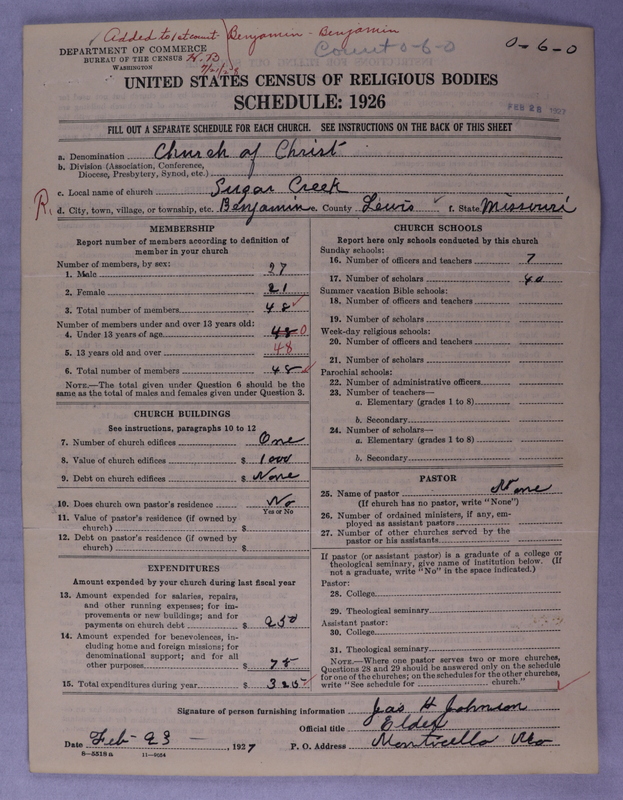 Added to 1st count Benjamin - Benjamin
H.B.
7/21/28
Count 0-6-0
0-6-0
DEPARTMENT OF COMMERCE
BUREAU OF THE CENSUS
WASHINGTON
UNITED STATES CENSUS OF RELIGIOUS BODIES
SCHEDULE: 1926
FEB 28 1927
FILL OUT A SEPARATE SCHEDULE FOR EACH CHURCH. SEE INSTRUCTIONS ON THE BACK OF THIS SHEET
a. Denomination Church of Christ
b. Division (Association, Conference,
Diocese, Presbytery, Synod, etc.)
c. Local name of church Sugar Creek
R. d. City, town, village, or township, etc. Benjamin e. County Lewis f. State Missouri
MEMBERSHIP
Report number of members according to definition of
member in your church
Number of members, by sex:
1. Male 27
2. Female 21
3. Total number of members 48
Number of members under and over 13 years old:
4. Under 13 years of age 48 0
5. 13 years old and over 48
6. Total number of members 48
NOTE.—The total given under Question 6 should be
same as the total of males and females given under Question 3.
CHURCH BUILDINGS
See instructions, paragraphs 10 to 12
7. Number of church edifices One
8. Value of church edifices $ 1000
9. Debt on church edifices $ None
10. Does church own pastor's residence No
Yes or No
11. Value of pastor's residence (if owned by
church) $
12. Debt on pastor's residence (if owned by
church) $
EXPENDITURES
Amount expended by your church during last fiscal year
13. Amount expended for salaries, repairs,
and other running expenses; for im-
provements or new buildings; and for
payments on church debt $ 250
14. Amount expended for benevolences, in-
cluding home and foreign missions; for
denominational support; and for all
other purposes $ 75
15. Total expenditures during year $ 325
CHURCH SCHOOLS
Report here only schools conducted by this church
Sunday schools:
16. Number of officers and teachers 7
17. Number of scholars 40
Summer vacation Bible schools:
18. Number of officers and teachers
19. Number of scholars
Week-day religious schools:
20. Number of officers and teachers
21. Number of scholars
Parochial schools:
22. Number of administrative officers
23. Number of teachers—
a. Elementary (grades 1 to 8)
b. Secondary
24. Number of scholars—
a. Elementary (grades 1 to 8)
b. Secondary
PASTOR
25. Name of pastor None
(If church has no pastor, write "None")
26. Number of ordained ministers, if any, em-
ployed as assistant pastors
27. Number of other churches served by the
pastor or his assistants
If pastor (or assistant pastor) is a graduate of a college or
theological seminary, give name of institution below. (If
not a graduate, write "No" in the space indicated.)
Pastor:
28. College
29. Theological seminary
Assistant pastor:
30. College
31. Theological seminary
NOTE.—Where one pastor serves two or more churches,
Questions 28 and 29 should be answered only on the schedule
for one of the churches; on the schedules for the other churches,
write "See schedule for church."
Signature of person furnishing information Jas H Johnson
Official title Elder
Date Feb 23, 1927 P. O. Address Monticello Mo
8-5518a 11-9034